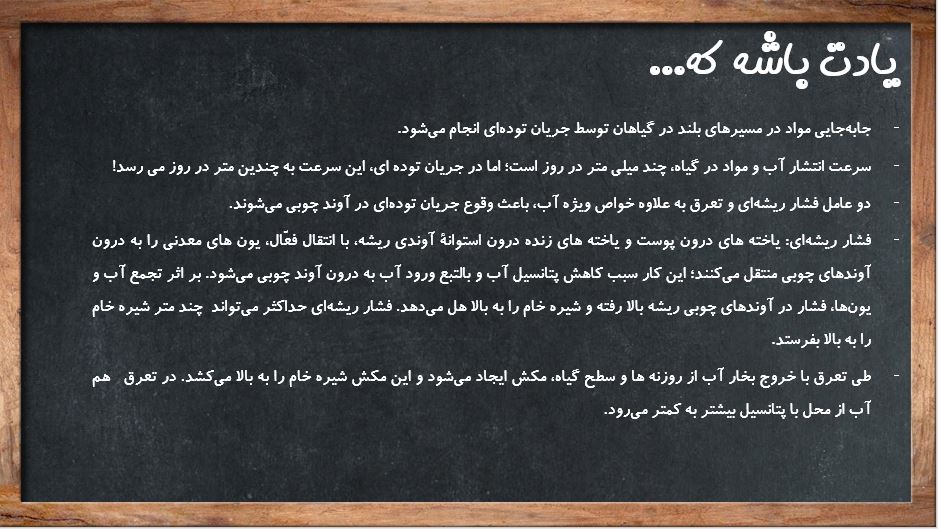 یادت باشه که...
- جابه‌جایی مواد در مسیرهای بلند در گیاهان توسط جریان توده‌ای انجام می‌شود.
- سرعت انتشار آب و مواد در گیاه، چند میلی متر در روز است؛ اما در جریان توده ای، این سرعت به چندین متر در روز می رسد!
- دو عامل فشار ریشه‌ای و تعرق به علاوه خواص ویژه آب، باعث وقوع جریان توده‌ای در آوند چوبی می‌شوند.
- فشار ریشه‌ای: یاخته های درون پوست و یاخته های زنده درون استوانهٔ آوندی ریشه، با انتقال فعّال، یون های معدنی را به درون
آوندهای چوبی منتقل می‌کنند؛ این کار سبب کاهش پتانسیل آب و بالتبع ورود آب به درون آوند چوبی می‌شود. بر اثر تجمع آب و
یون‌ها، فشار در آوندهای چوبی ریشه بالا رفته و شیره خام را به بالا هل می‌دهد. فشار ریشه‌ای حداکثر می‌تواند چند متر شیره خام
را به بالا بفرستد.
- طی تعرق با خروج بخار آب از روزنه ها و سطح گیاه، مکش ایجاد می‌شود و این مکش شیره خام را به بالا می‌کشد. در تعرق هم
آب از محل با پتانسیل بیشتر به کمتر می‌رود.